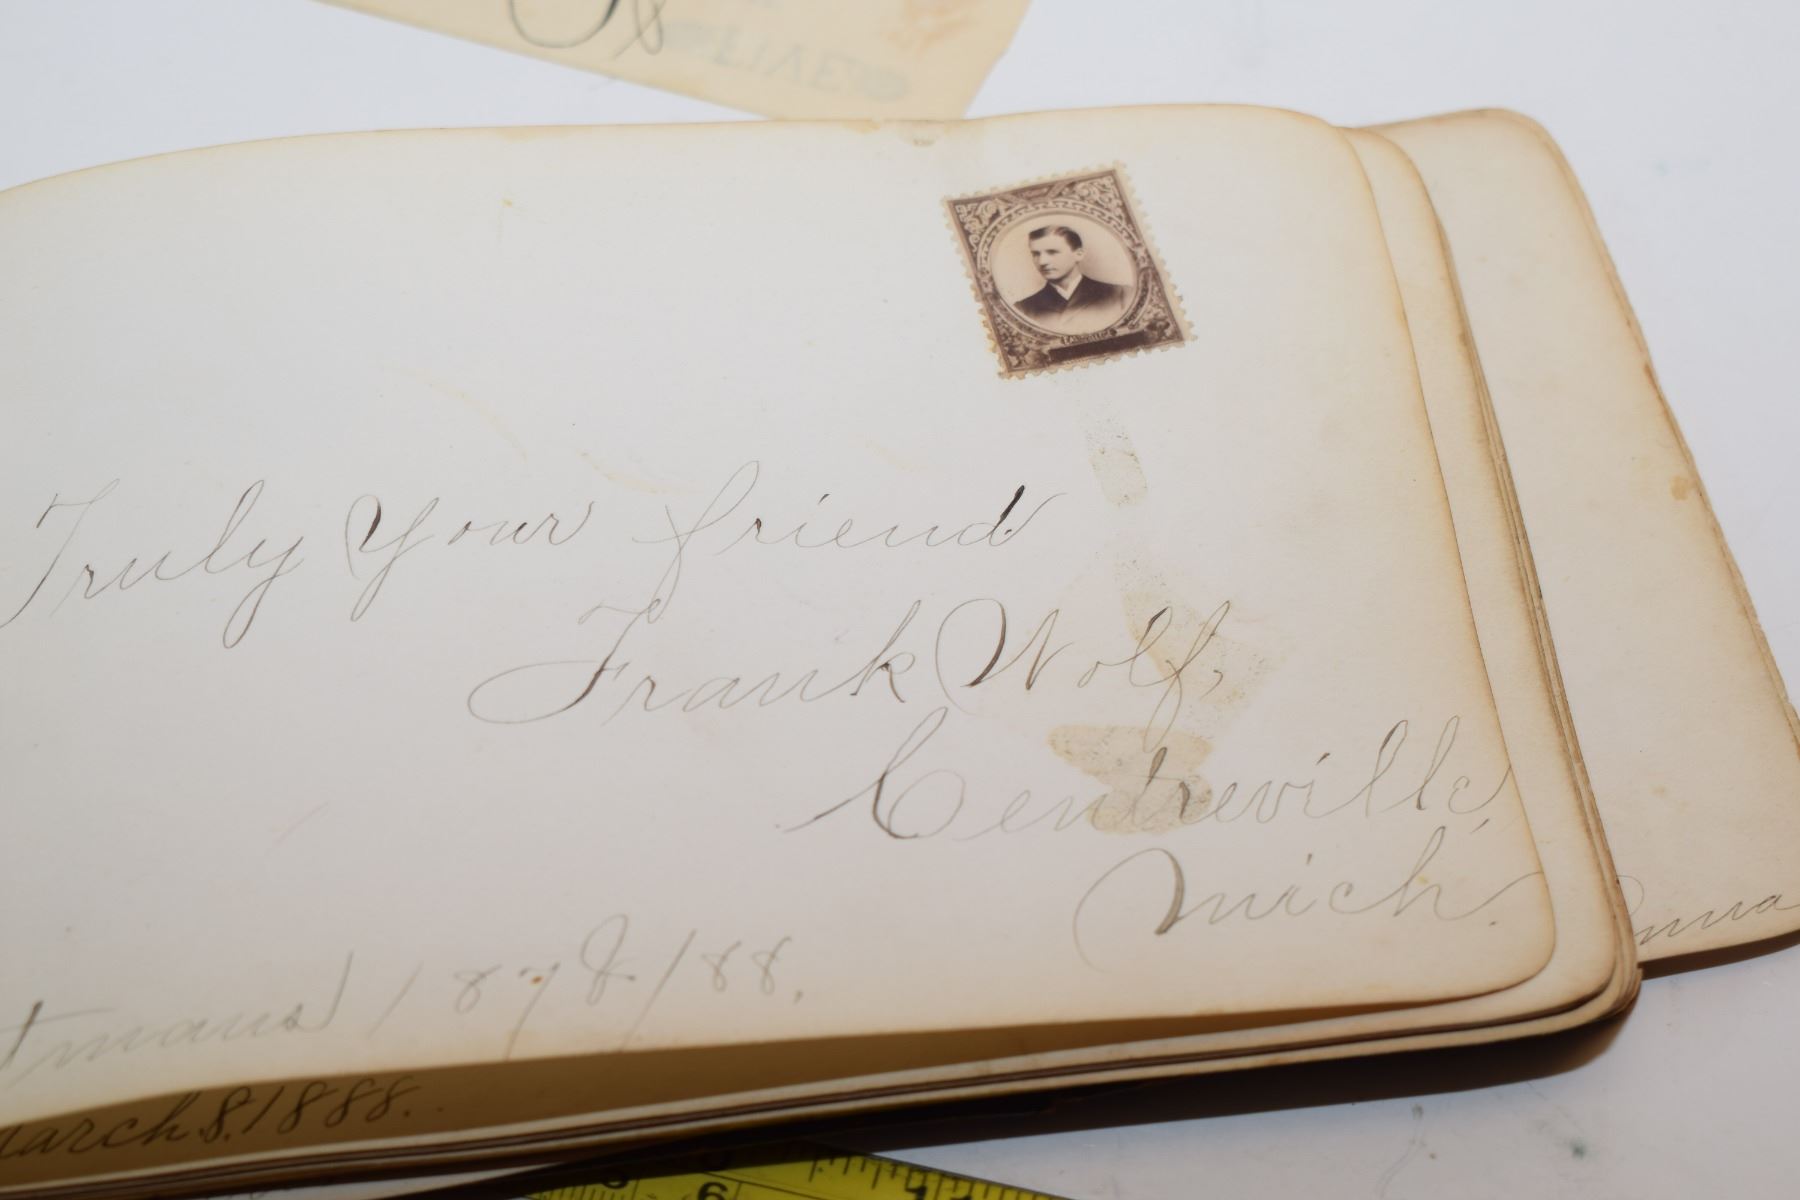 FIVE
Truly Your friend
Frank Wolf,
Centreville,
Mich.
tmans / 1878/88.
March 8. 1888.
Emma
6
11